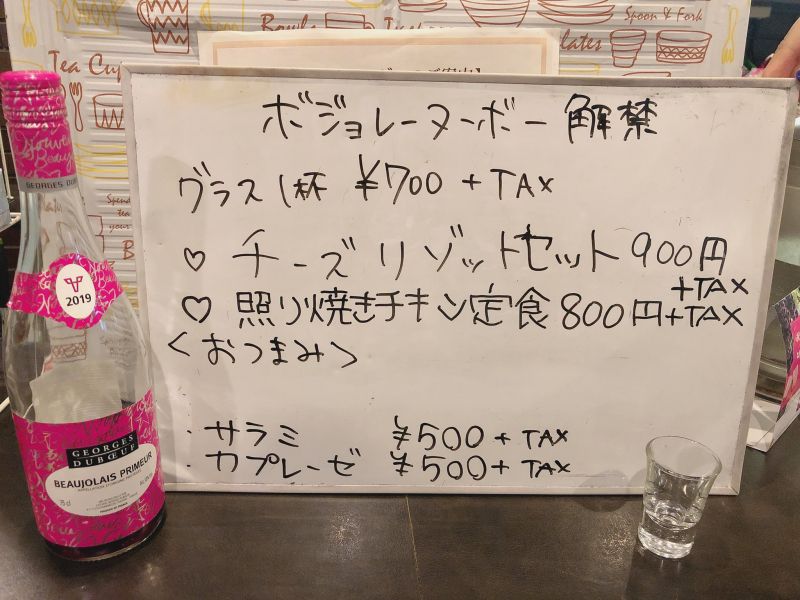 Bowls
Spoon & Fork
Tea Cup
lates
ボジョレーヌーボー 解禁
グラス1杯 ¥700 + TAX
♡ チーズリゾットセット 900円
+TAX
♡ 照り焼きチキン定食 800円+TAX
<おつまみ>
・サラミ ¥500 + TAX
・カプレーゼ ¥500 + TAX
2019
GEORGES
DUBŒUF
BEAUJOLAIS PRIMEUR
75 cl